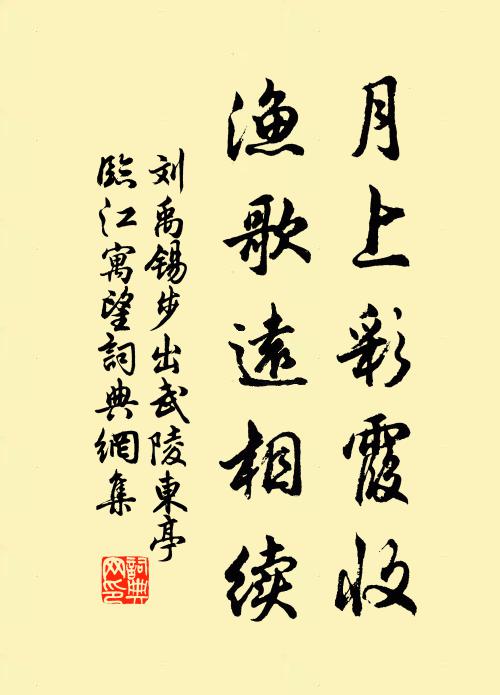 月上彩霞收
漁歌遠相续
刘禹锡步出武陵東亭
臨江寓望詞典網集
詞典
网印